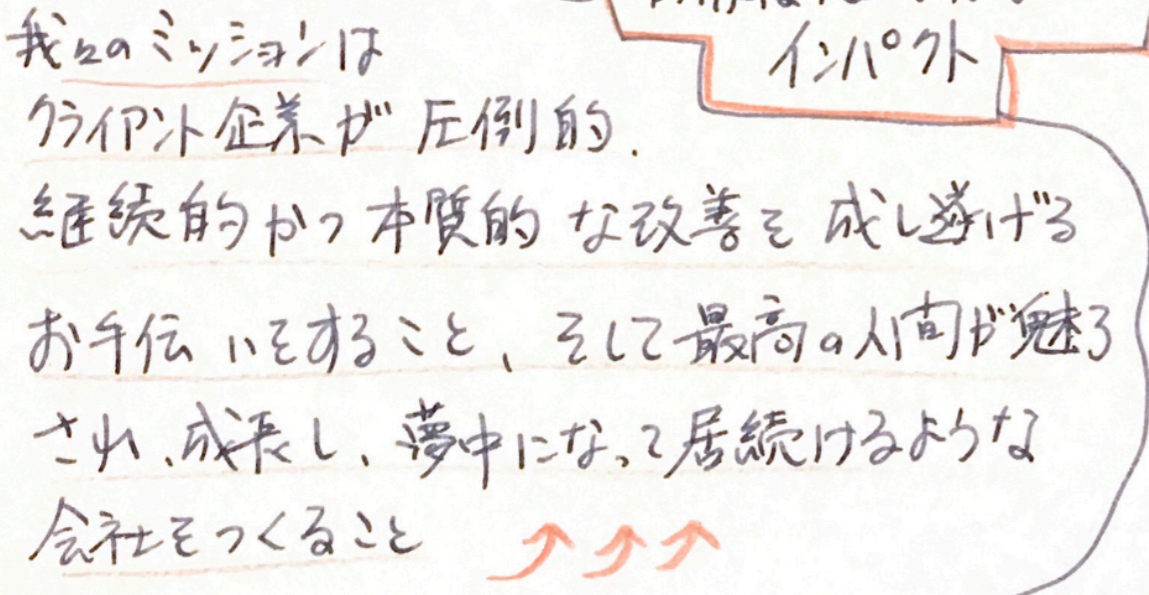 インパクト
我々のミッションは
クライアント企業が圧倒的、
継続的かつ本質的な改善を成し遂げる
お手伝いをすること、そして最高の人間が魅了
され、成長し、夢中になって居続けるような
会社をつくること